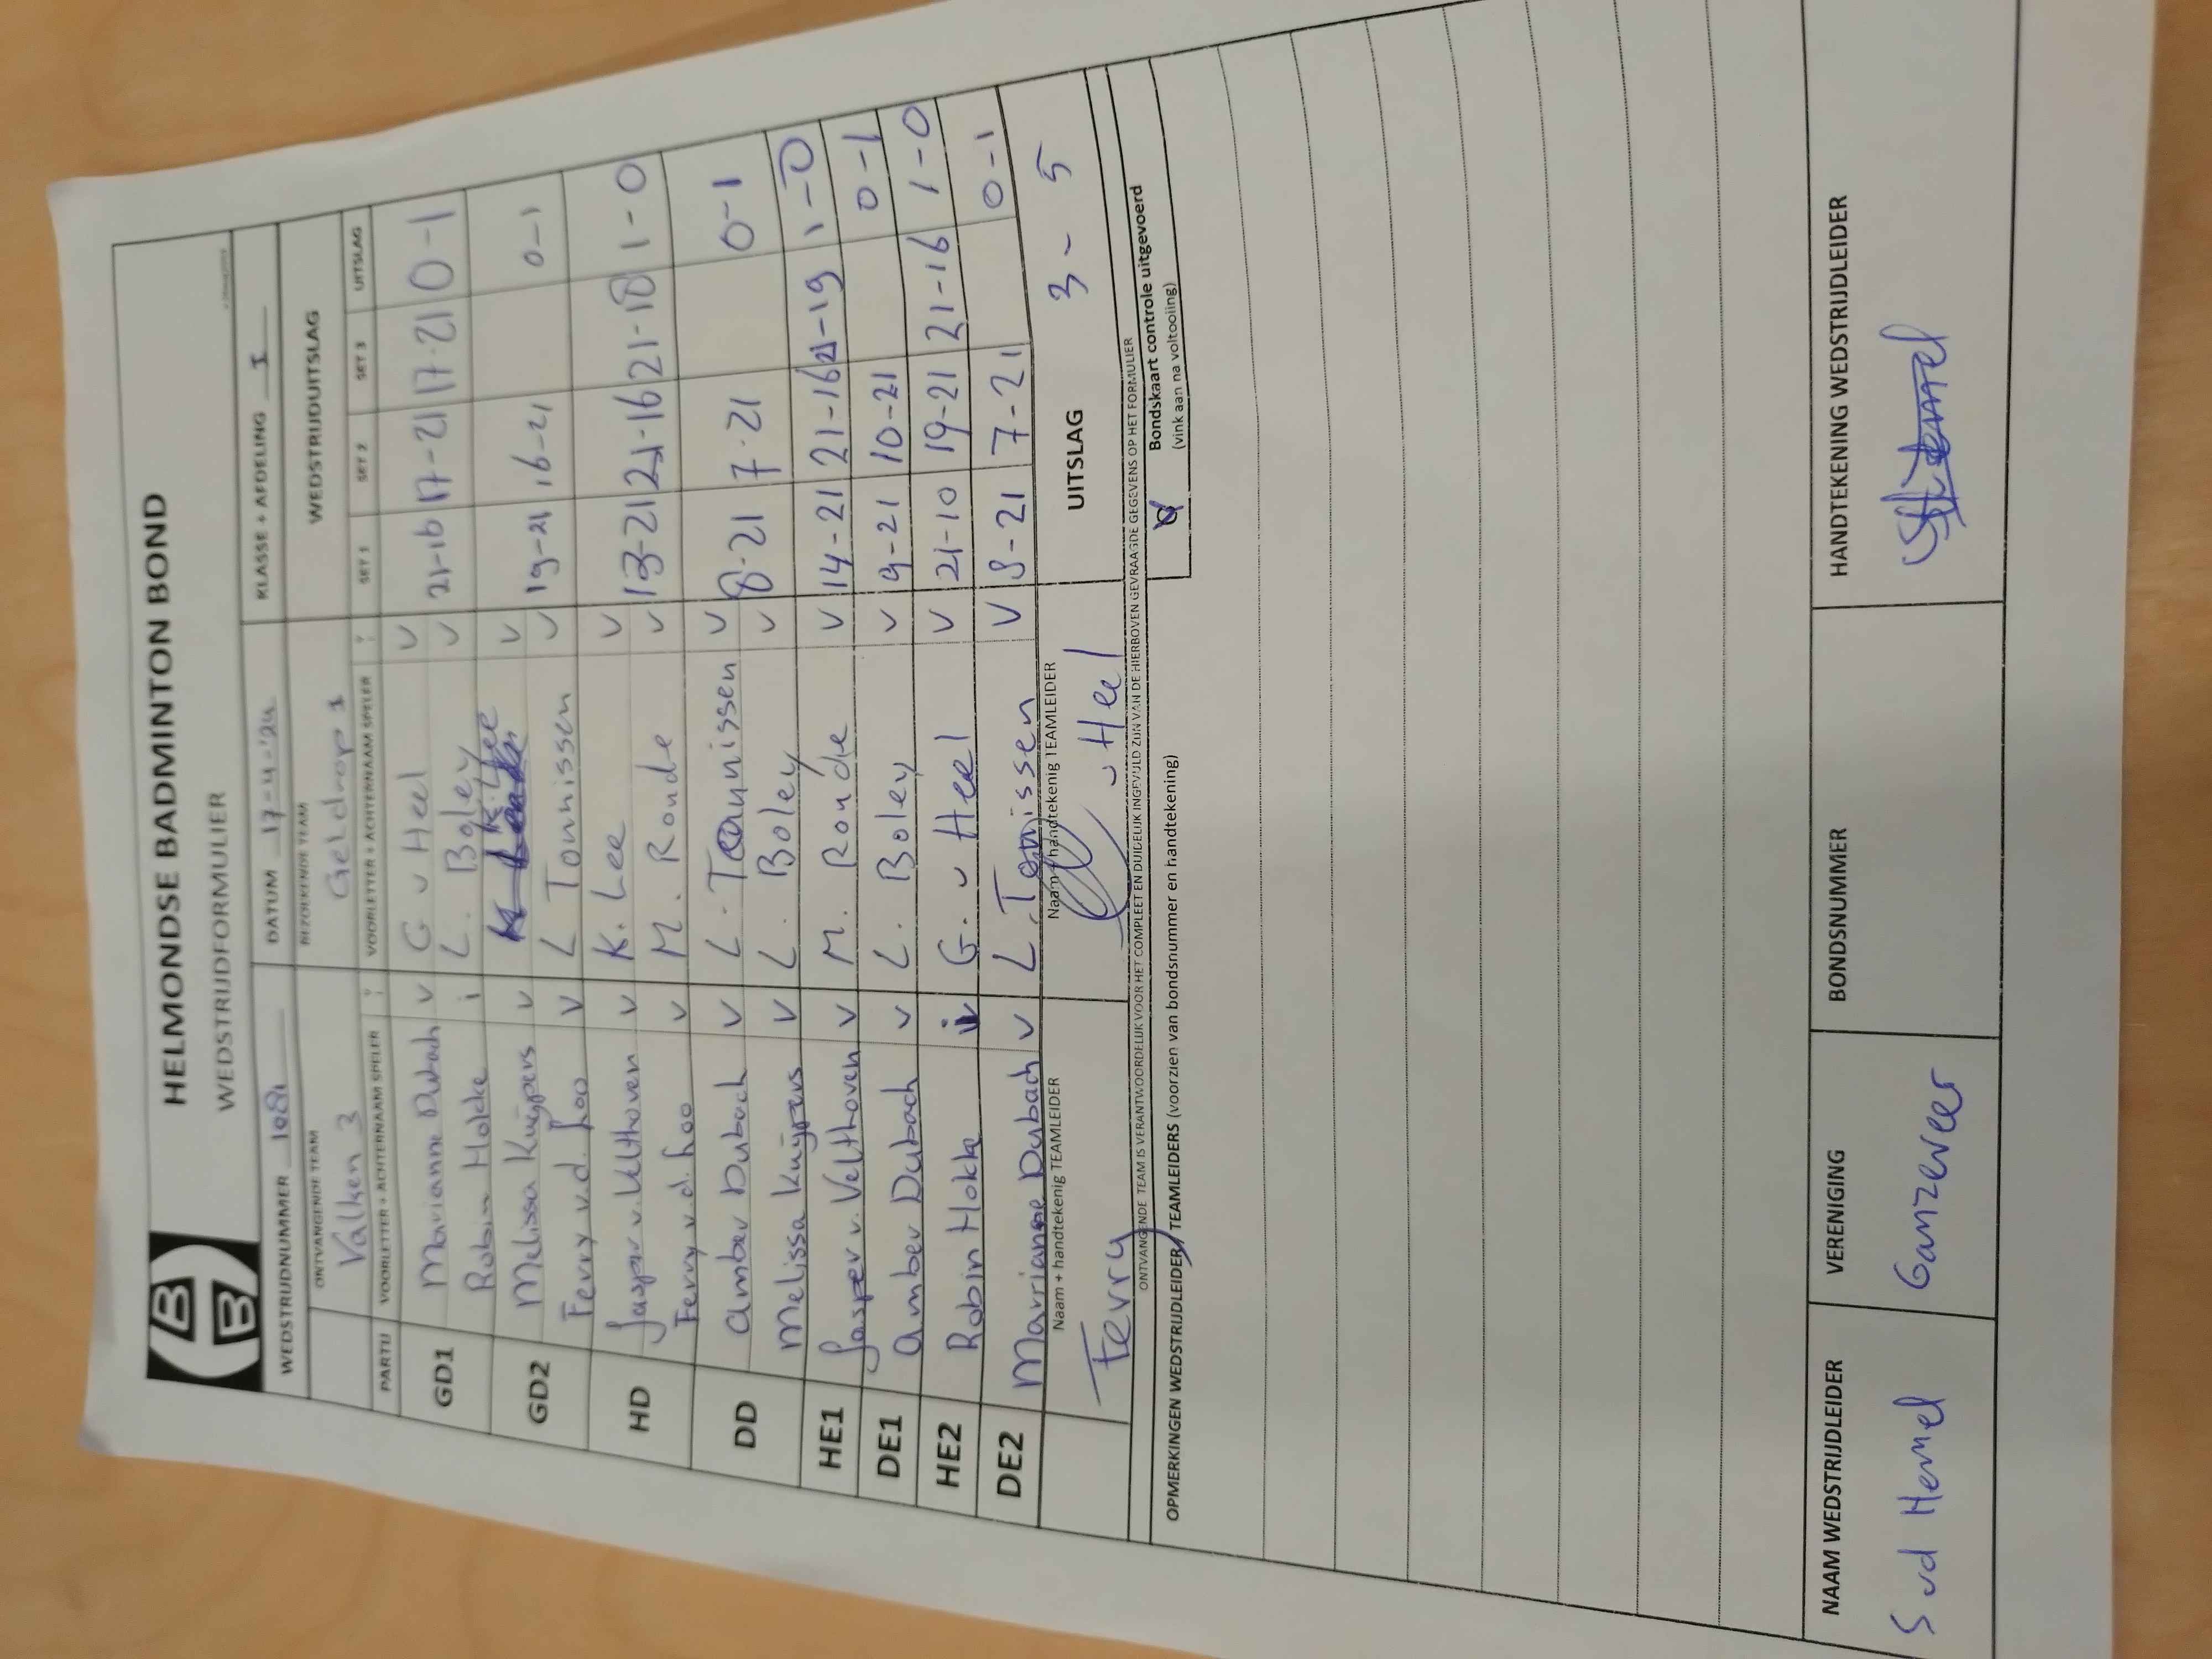 HELMONDSE BADMINTON BOND
WEDSTRIJDFORMULIER
WEDSTRIJDNUMMER 1081 DATUM 17-4-'24 KLASSE + AFDELING I
ONTVANGENDE TEAM BEZOEKENDE TEAM WEDSTRIJDUITSLAG
Valken 3 Geldrop 1
PARTIJ VOORLETTER + ACHTERNAAM SPELER ? VOORLETTER + ACHTERNAAM SPELER ? SET 1 SET 2 SET 3 UITSLAG
GD1 Marianne Dubach v G v Heel v 21-16 17-21 17-21 0-1
Robin Hokke i L. Boley v
GD2 Melissa Kuijpers v K. Lee v 19-21 16-21 0-1
Ferry v.d. Loo v L Tonnissen v
HD Jasper v. Velthoven v K. Lee v 13-21 21-16 21-18 1-0
Ferry v.d. Loo v M. Ronde v
DD Amber Dubach v L. Tonnissen v 8-21 7-21 0-1
Melissa Kuijpers v L. Boley v
HE1 Jasper v. Velthoven v M. Ronde v 14-21 21-16 21-19 1-0
DE1 Amber Dubach v L. Boley v 9-21 10-21 0-1
HE2 Robin Hokke G. v Heel v 21-10 19-21 21-16 1-0
DE2 Marrianne Dubach v L. Tonissen v 8-21 7-21 0-1
Naam + handtekenig TEAMLEIDER Naam + handtekenig TEAMLEIDER UITSLAG 3-5
Ferry v Heel
ONTVANGENDE TEAM IS VERANTWOORDELIJK VOOR HET COMPLEET EN DUIDELIJK INGEVULD ZIJN VAN DE HIERBOVEN GEVRAAGDE GEGEVENS OP HET FORMULIER
Bondskaart controle uitgevoerd
(vink aan na voltooiing)
OPMERKINGEN WEDSTRIJDLEIDER / TEAMLEIDERS (voorzien van bondsnummer en handtekening)
NAAM WEDSTRIJDLEIDER VERENIGING BONDSNUMMER HANDTEKENING WEDSTRIJDLEIDER
S vd Hemel Ganzeveer